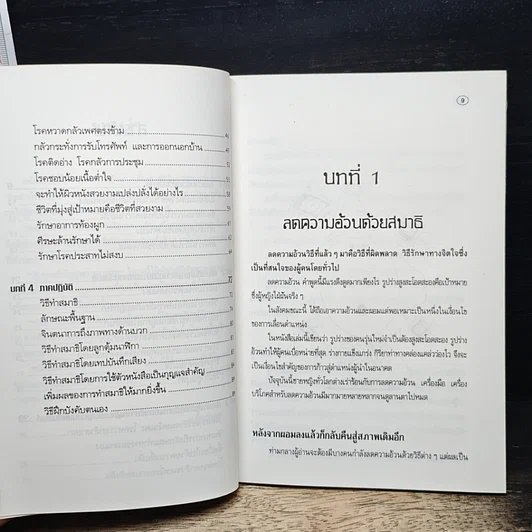 โรคหวาดกลัวเพศตรงข้าม
กลัวกระทั่งการรับโทรศัพท์ และการออกนอกบ้าน
โรคติดอ่าง โรคกลัวการประชุม
โรคชอบน้อยเนื้อต่ำใจ
จะทำให้ผิวหนังสวยงามเปล่งปลั่งได้อย่างไร
ชีวิตที่มุ่งสู่เป้าหมายคือชีวิตที่สวยงาม
รักษาอาการท้องผูก
ศีรษะล้านรักษาได้
รักษาโรคประสาทไม่สงบ
บทที่ 4 ภาคปฏิบัติ 77
วิธีทำสมาธิ
ลักษณะพื้นฐาน
จินตนาการถึงภาพทางด้านบวก
วิธีทำสมาธิโดยลูกตุ้มนาฬิกา
วิธีทำสมาธิโดยเทปบันทึกเสียง
วิธีทำสมาธิโดยการใช้ตัวหนังสือเป็นกุญแจสำคัญ
เพิ่มผลของการทำสมาธิให้มากยิ่งขึ้น
วิธีฝึกบังคับตนเอง
9
บทที่ 1
ลดความอ้วนด้วยสมาธิ
ลดความอ้วนวิธีที่แล้ว ๆ มาคือวิธีที่ผิดพลาด วิธีรักษาทางจิตใจซึ่ง
เป็นที่สนใจของผู้คนโดยทั่วไป
ลดความอ้วน คำพูดนี้มีแรงดึงดูดมากเพียงไร รูปร่างสูงสะโอดสะองคือเป้าหมาย
ซึ่งผู้หญิงใฝ่ฝันจริง ๆ
ในสังคมขณะนี้ ได้ถือเอาความอ้วนและผอมแต่พอเหมาะเป็นหนึ่งในเงื่อนไข
ของการเลื่อนตำแหน่ง
ในหนังสือเล่มนี้เขียนว่า รูปร่างของคนรุ่นใหม่จำเป็นต้องสูงสะโอดสะอง รูปร่าง
อ้วนทำให้ผู้คนเบื่อหน่ายที่สุด ร่างกายแข็งแกร่ง กิริยาท่าทางคล่องแคล่วว่องไว จึงจะ
เป็นเงื่อนไขสำคัญของการก้าวสู่ตำแหน่งผู้นำในอนาคต
ปัจจุบันนี้ชายหญิงทั่วโลกต่างเร่าร้อนกับการลดความอ้วน เครื่องมือ เครื่อง
บริโภคสำหรับลดความอ้วนมีมากมายหลากหลายจนดูลานตาไปหมด
หลังจากผอมลงแล้วก็กลับคืนสู่สภาพเดิมอีก
ท่ามกลางผู้อ่านจะต้องมีบางคนกำลังลดความอ้วนด้วยวิธีต่าง ๆ แต่ผลเป็น